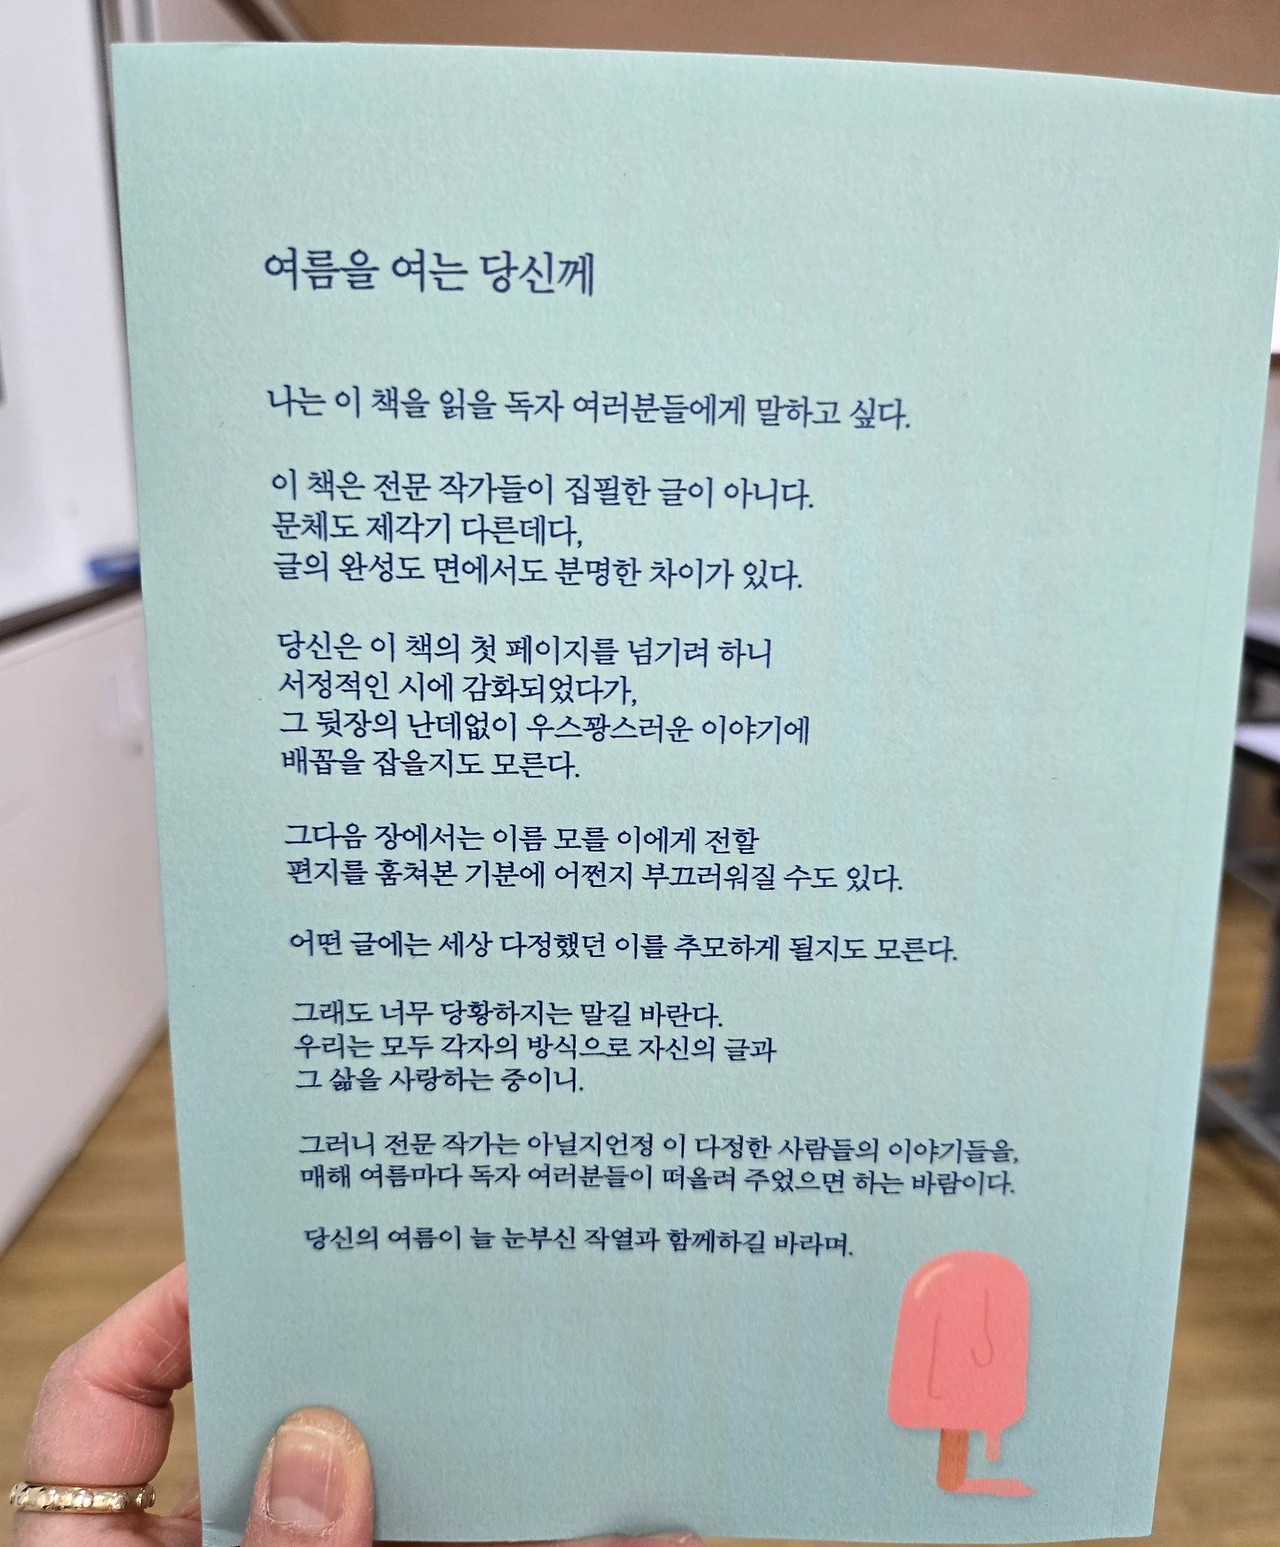 여름을 여는 당신께
나는 이 책을 읽을 독자 여러분들에게 말하고 싶다.
이 책은 전문 작가들이 집필한 글이 아니다.
문체도 제각기 다른데다,
글의 완성도 면에서도 분명한 차이가 있다.
당신은 이 책의 첫 페이지를 넘기려 하니
서정적인 시에 감화되었다가,
그 뒷장의 난데없이 우스꽝스러운 이야기에
배꼽을 잡을지도 모른다.
그다음 장에서는 이름 모를 이에게 전할
편지를 훔쳐본 기분에 어쩐지 부끄러워질 수도 있다.
어떤 글에는 세상 다정했던 이를 추모하게 될지도 모른다.
그래도 너무 당황하지는 말길 바란다.
우리는 모두 각자의 방식으로 자신의 글과
그 삶을 사랑하는 중이니.
그러니 전문 작가는 아닐지언정 이 다정한 사람들의 이야기들을,
매해 여름마다 독자 여러분들이 떠올려 주었으면 하는 바람이다.
당신의 여름이 늘 눈부신 작열과 함께하길 바라며.